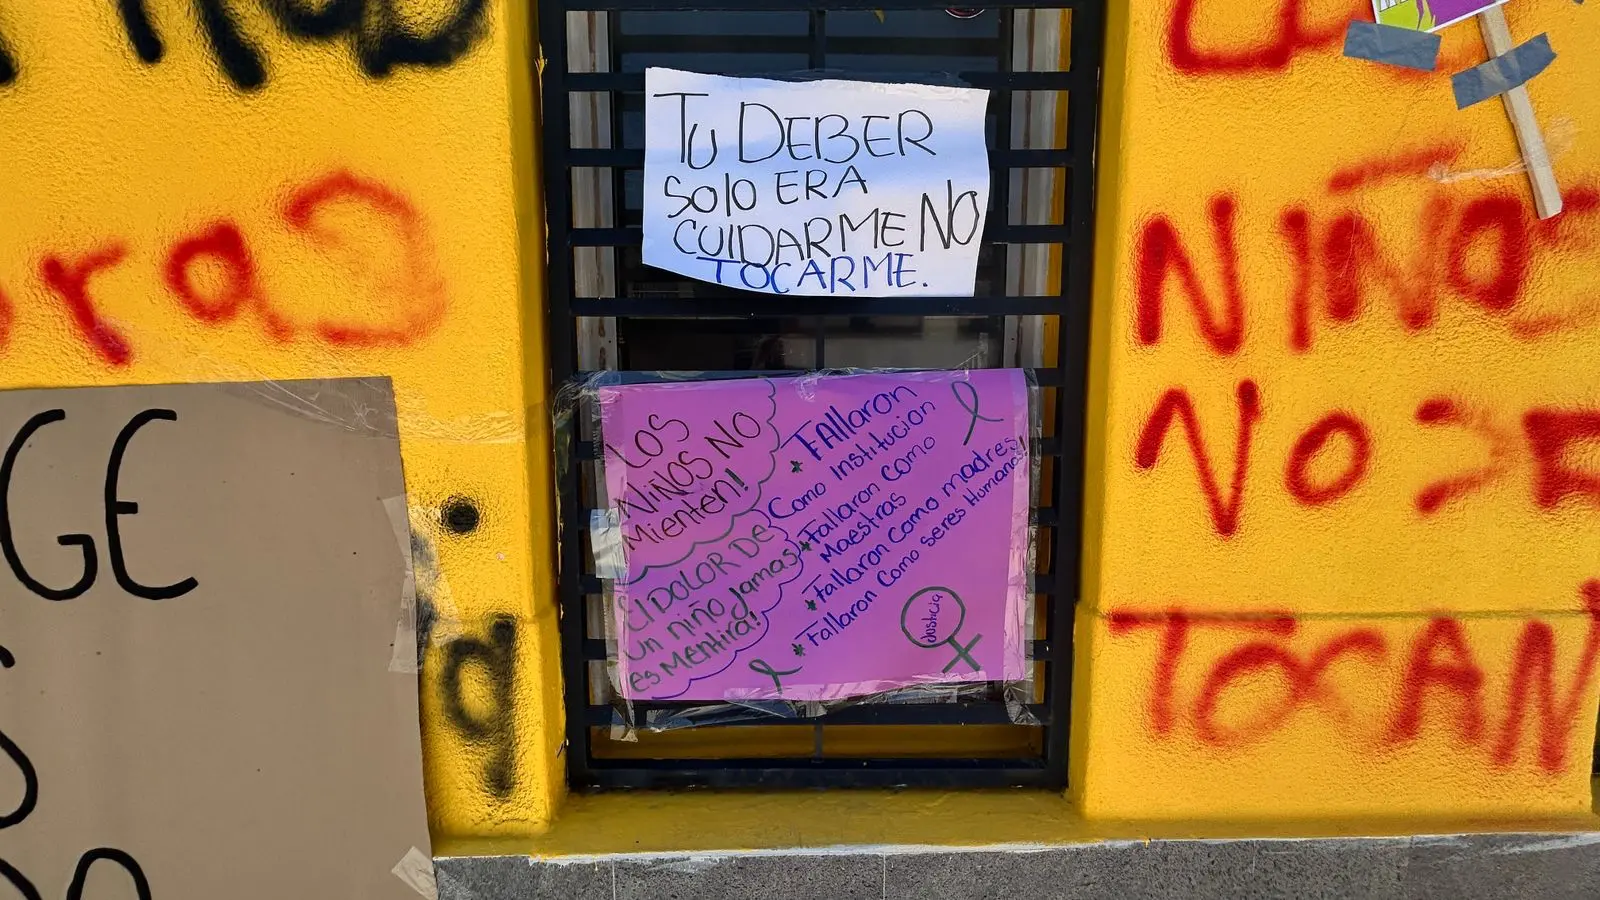 TU DEBER
SOLO ERA
CUIDARME NO
TOCARME.
LOS
NIÑOS NO
Mienten!
El DOLOR DE
Un niño Jamas
es Mentira!
* FAllaron
Como Institucion
* Fallaron como
Maestras
* Fallaron como madres
* Fallaron Como seres Humanos!
Justicia
NIÑOS
NO SE
TOCAN
GE